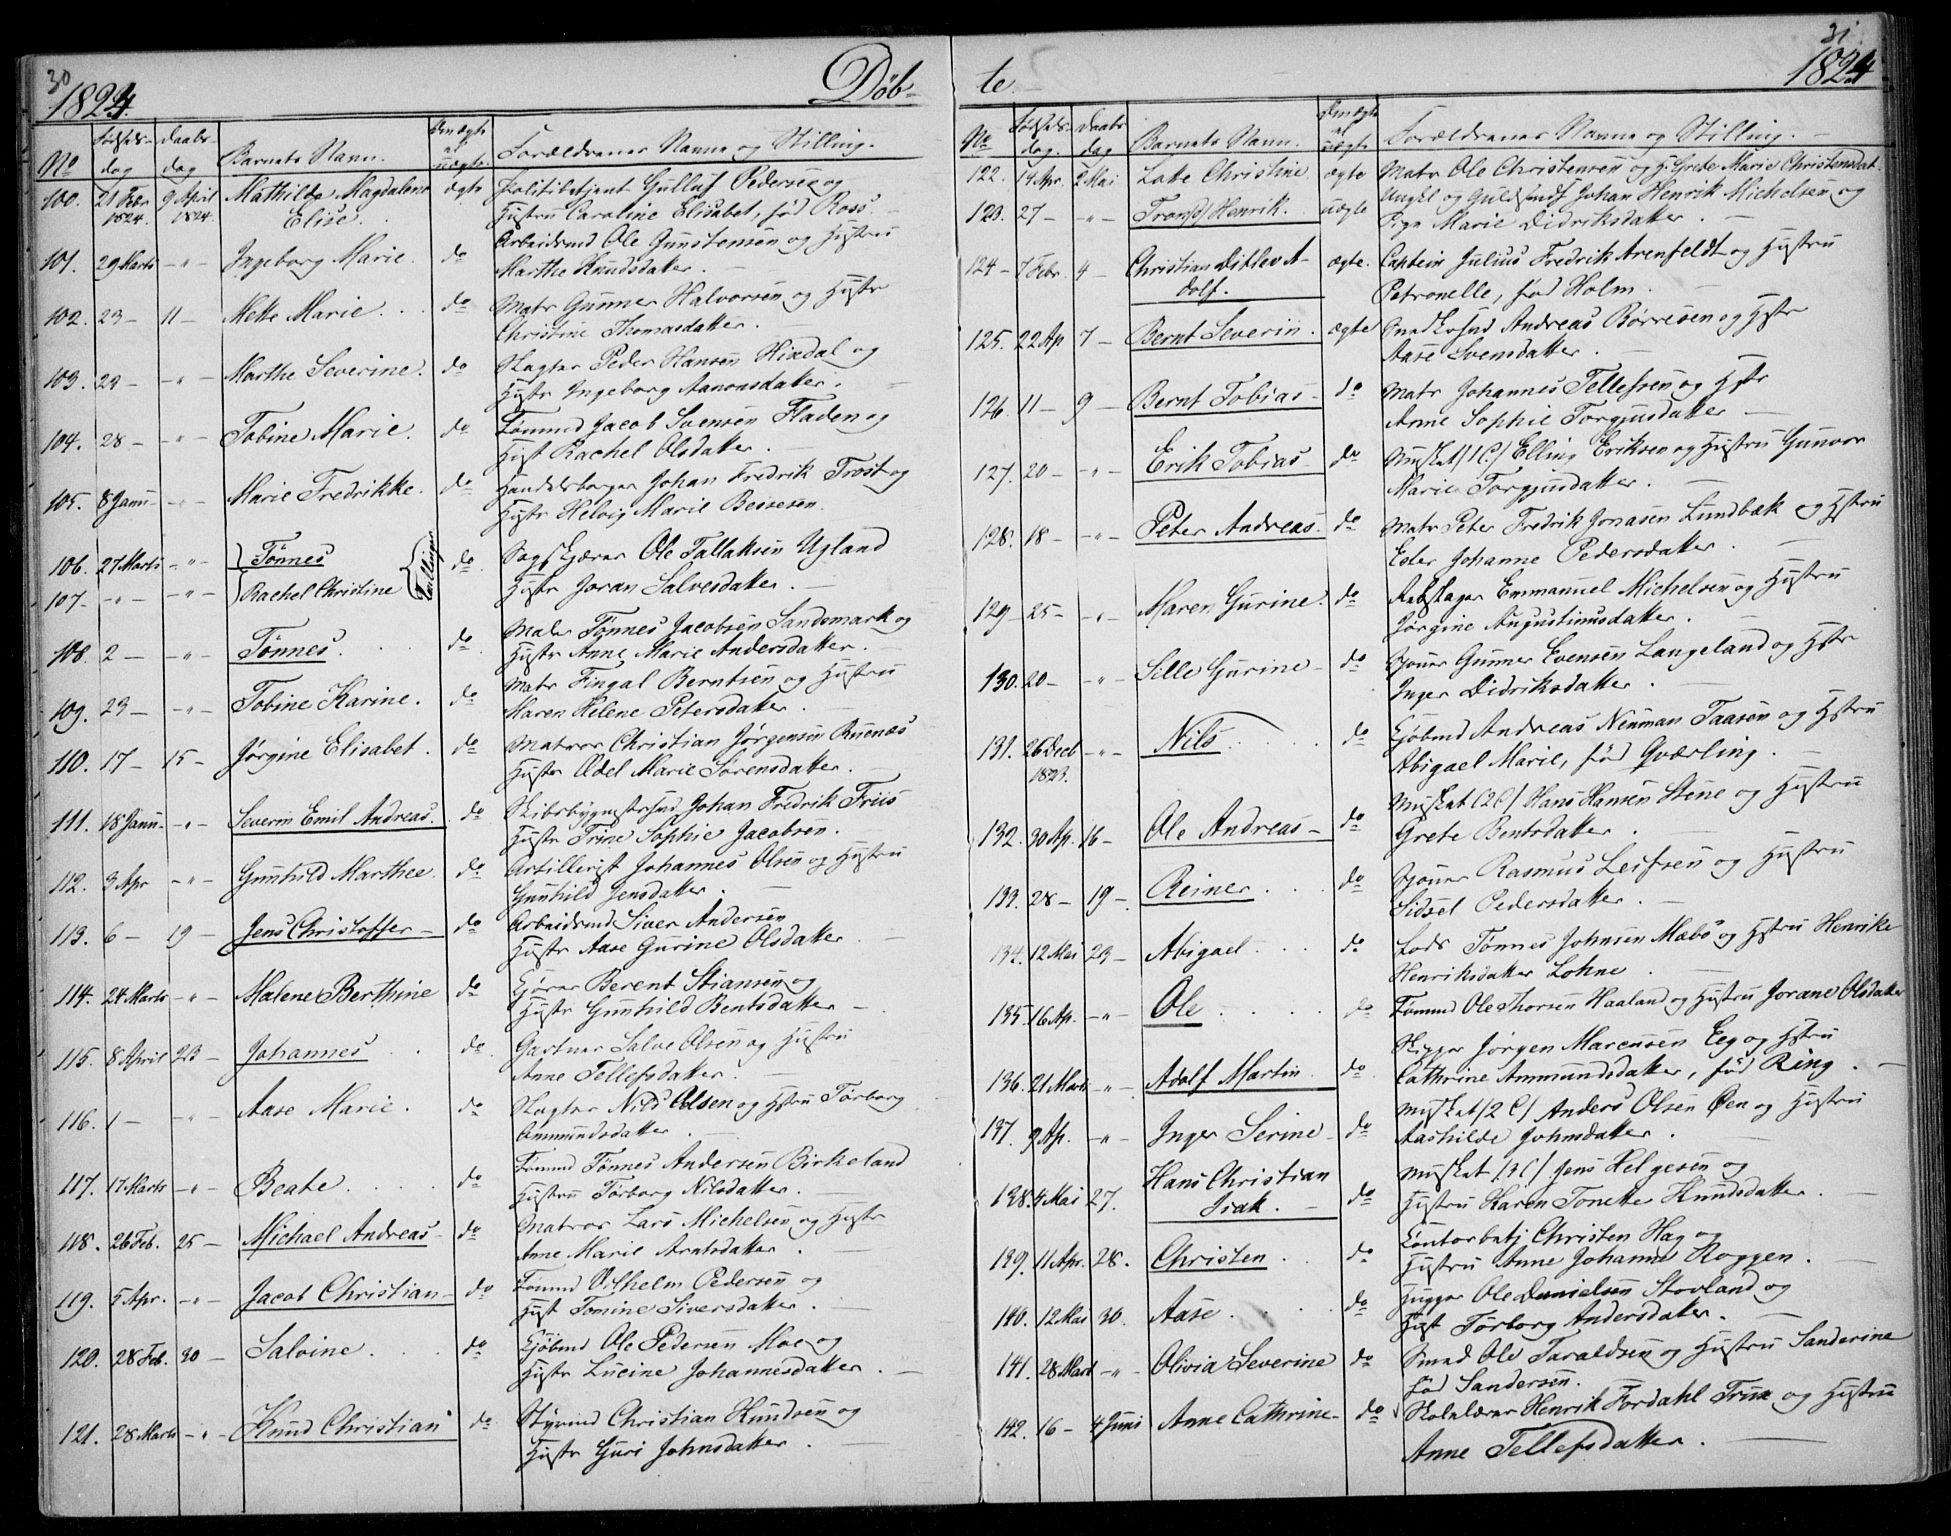 30
1824.
Døb-
No
Fødsels-dag
Daabs-dag
Barnets Navn.
Om ægte el uægte.
Forældrenes Navne og Stilling.
100. 21 Febr 1824. 9 April 1824. Mathilde Magdalena ægte Politibetjent Gulluf Pedersen og
Elise. Hustru Caroline Elisabet, fød Ross.
101. 29 Marts -"- Ingeborg Marie. do Arbeidsmd Ole Gunstensen og Hustru
Marthe Knudsdatter.
102. 23 - 11 - Mette Marie. do Matr Gunner Halvorsen og Hustr
Christine Thomasdatter.
103. 24 - -"- Marthe Severine. do Slagter Peder Hansen Hirdal og
Hustr Ingeborg Aanonsdatter.
104. 28 - -"- Tobine Marie. do Tømmd Jacob Svensen Fladen og
Hust Rachel Olsdatter.
105. 8 Janu- -"- Marie Fredrikke. do Handelsborger Johan Fredrik Trost og
Hustr Helvig Marie Beisesen.
106. 27 Marts -"- Tønnes do Sagskjærer Ole Tallaksen Ugland
107- -"- -"- Rachel Christine Tvillinger Hustr Joran Salvesdatter.
108. 2 - -"- Tønnes. do Maler Tønnes Jacobsen Sandsmark og
Hustr Anne Marie Andersdatter.
109. 23 - -"- Tobine Karine. do Matr Fingal Berntsen og Hustru
Maren Helene Petersdatter.
110. 17 - 15 - Jørgine Elisabet. do Matros Christian Jørgensen Ruenæs
Hustr Edel Marie Sørensdatter.
111. 18 Janu- -"- Severin Emil Andreas. do Skibsbygmestersvd Johan Fredrik Friis
Hustr Trine Sophie Jacobsen.
112. 3 Apr -"- Gunhild Marthee. do Artillerist Johannes Olsen og Hustru
Gunhild Jensdatter.
113. 6 - 19 - Jens Christoffer - do Arbeidsmd Siver Andersen
Hustr Aase Gurine Olsdatter.
114. 24 Marts -"- Malene Berthine do Gjører Berent Stiansen og
Hustr Gunhild Bentsdatter -
115. 8 April 23 - Johannes do Gartner Salve Olsen og Hustru
Anne Tellefsdatter.
116. 1 - -"- Aase Marie. do Slagter Nils Olsen og Hstru Tørborg
Ommundsdatter.
117. 17 Marts -"- Beate. do Tømmd Tønnes Andersen Birkeland
Hustru Tørborg Nilsdatter.
118. 26 Feb. 25 - Michael Andreas - do Matros Lars Michelsen og Hustr
Anne Marie Arntsdatter.
119. 5 Apr. -"- Jacob Christian - do Tømmd Vilhelm Pedersen og
Hust Tomine Siversdatter.
120. 28 Feb. 30 - Salvine. do Gjöbmd Ole Pedersen Moe og
Hustr Lucine Johannesdatter.
121. 28 Marts -"- Knud Christian do Styrmd Christian Knudsen og
Hustr Guri Johnsdatter.
31
te.
1824
No.
Fødsels-dag.
Daabs-dag
Barnets Navn.
Om ægte el uægte
Forældrenes Navne og Stilling.
122. 14 Apr. 2 Mai Lotte Christine. ægte Matr Ole Christensen og H. Grete Marie Christensdat
123. 27 - -"- Henrik. uægte Ungkl og Guldsmds Johan Henrik Michelsen og
Pige Marie Didriksdatter.
124 - 7 Febr. 4 - Christian Ditlev A- ægte. Captein Julius Fredrik Arenfeldt og Hustru
dolf. Petronelle, fød Holm.
125. 22 Ap 7 - Bernt Severin. ægte Andreas Børresen og Hstr
Aase Svensdatter.
126. 11 - 9 - Bernt Tobias - do Matr Johannes Tellefsen og Hstr
Anne Sophie Torgjusdatter
127. 20 - -"- Erik Tobias - do Muskat (1 C) Elling Eriksen og Hustru Gunvor
Marie Torgjusdatter.
128. 18 - -"- Peter Andreas. do Matr Peter Fredrik Jonasen Lundbæk og Hstru
Ester Johanne Pedersdatter.
129 - 25 - -"- Maren Gurine. do Rebslager Emmanuel Michelsen og Hustru
Jørgine Augustinusdatter.
130. 20 - -"- Sille Gurine - do Stouer Gunner Evensen Langeland og Hstr
Inger Didriksdatter.
131. 26 Decb 1823. -"- Nils do Gjöbmd Andreas Neuman Taasen og Hstru
Abigael Marie, fød Qværling.
132. 30 Ap. 16 - Ole Andreas - do Muskat (2 C) Hans Hansen Stene og Hustru
Grete Bentsdatter
133. 28 - 19 - Reiner. do Stouer Rasmus Leifsen og Hustru
Sidsel Pedersdatter.
134. 12 Mai 23 - Abigael do Lods Tønnes Johnsen Mæbø og Hstru Henrike
Henriksdatter Lohne.
135. 16 Ap. -"- Ole do Tømmd Ole Thorsen Haaland og Hustru Jorane Olsdatter
136. 21 Marts -"- Adolf Martin. do Skipper Jörgen Marcusen Eeg og Hstru
Cathrine Ammundsdatter, fød Ring.
137. 9 Ap. -"- Inger Serine - do Muskat (2 C) Anders Olsen Øen og Hustru
Aashilde Johnsdatter.
138. 4 Mai 27. Hans Christian do Muskat (3 C) Jens Helgesen og
Isak. - Hustru Karen Tonette Knudsdatter.
139. 11 Apr. 28. Christen. do Contorbetj Christen Hag og
Hustru Anne Johanne Roggen.
140. 12 Mai 30. Aase. do Hugger Ole Danielsen Stovland og
Hust Tørborg Andersdatter.
141. 28 Mart -"- Olivia Severine do Smed Ole Taraldsen og Hustru Sanderine
fød Sandersen.
142. 16 - 4 Juni Anne Cathrine - do Skolelærer Henrik Fordahl True og Hustru
Anne Tellefsdatter.